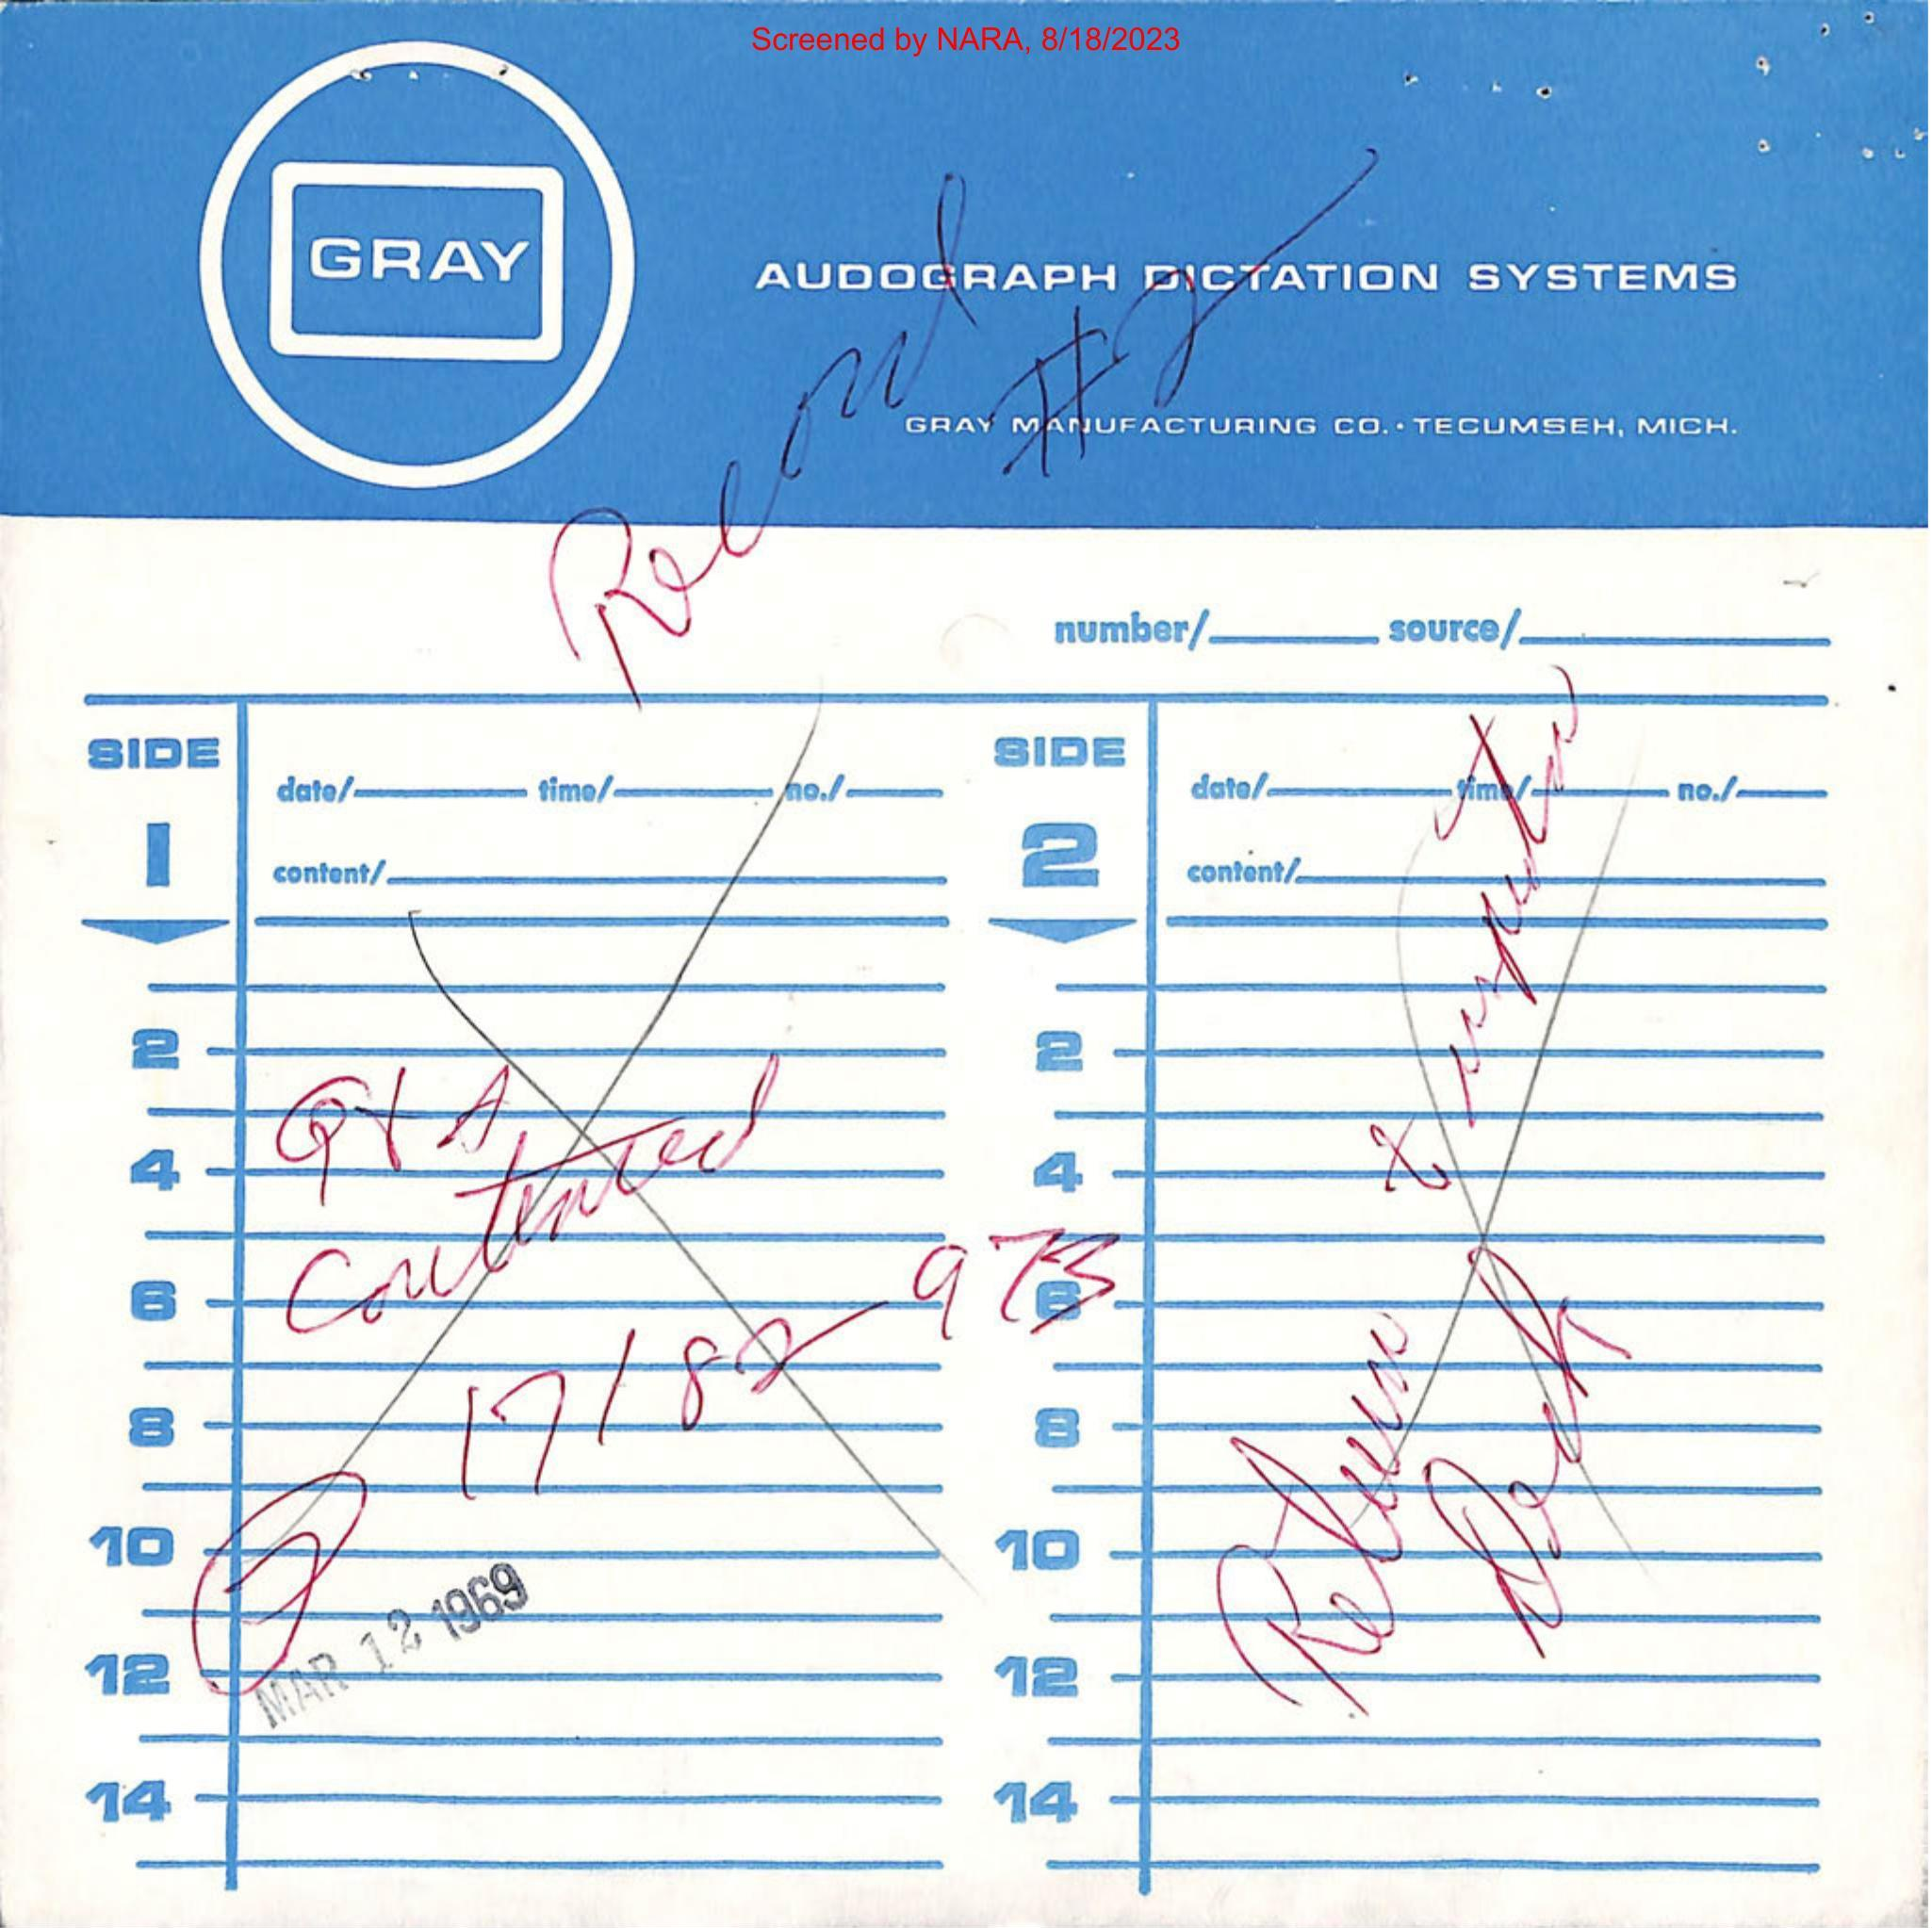 Screened by NARA, 8/18/2023
GRAY
AUDOGRAPH DICTATION SYSTEMS
GRAY MANUFACTURING CO. • TECUMSEH, MICH.
Record
#2
number/ source/
SIDE
1
date/ time/ no./
content/
2
Q & A
4
continued
6
17182-973
8
10
2
MAR 12 1969
12
14
SIDE
2
date/ time/ no./
content/
2
4
6
8
10
12
14
Return
to
Desk